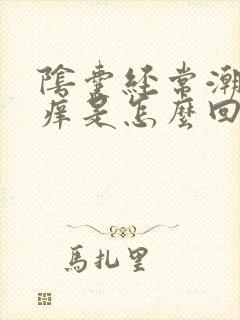 陰囊經常潮
痒是怎麼回
馬扎里